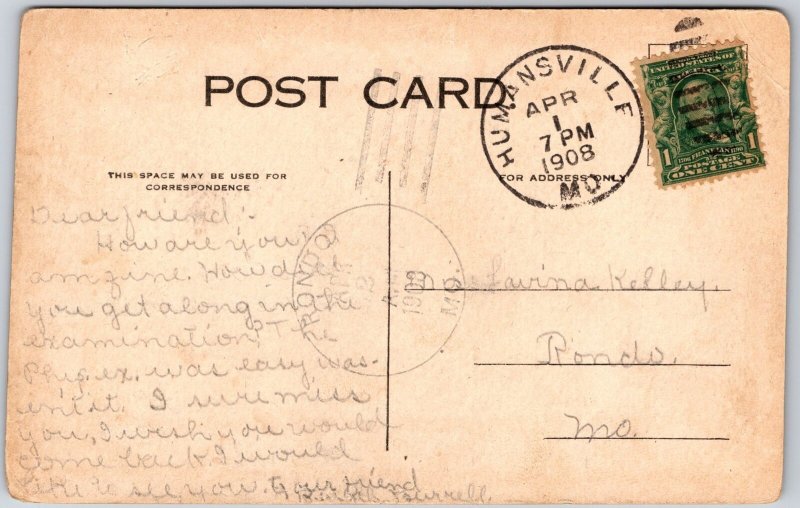 POST CARD
THIS SPACE MAY BE USED FOR
CORRESPONDENCE
FOR ADDRESS ONLY
HUMANSVILLE
APR
1
7 PM
1908
MO.
UNITED STATES OF
AMERICA
1 1706 FRANKLIN 1790 1
POSTAGE
ONE CENT
RONDO
APR
2
AM
1908
MO.
Dear friend:
How are you? I
am fine. How did
you get along in the
examination? The
Phys. ex. was easy was-
ent it. I sure miss
you, I wish you would
come back. I would
like to see you. Your friend
Burrell.
Lavina Kelley.
Rondo.
Mo.